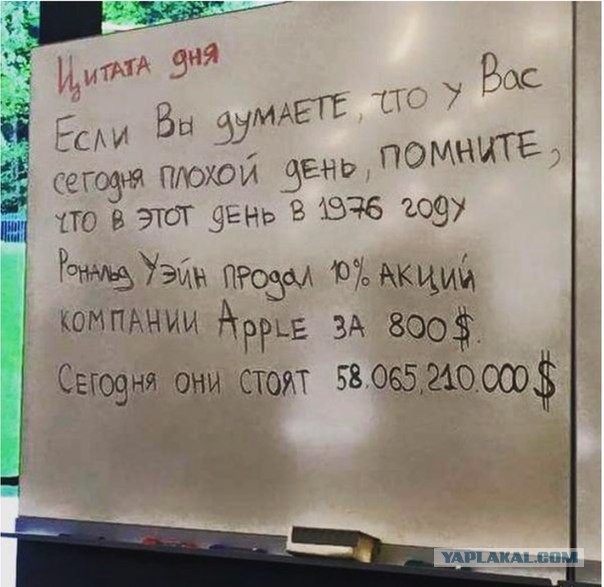 Цитата дня
Если Вы думаете, что у Вас
сегодня плохой день, помните,
что в этот день в 1976 году
Рональд Уэйн продал 10% акций
компании Apple за 800$.
Сегодня они стоят 58.065,210.000$
YAPLAKAL.COM